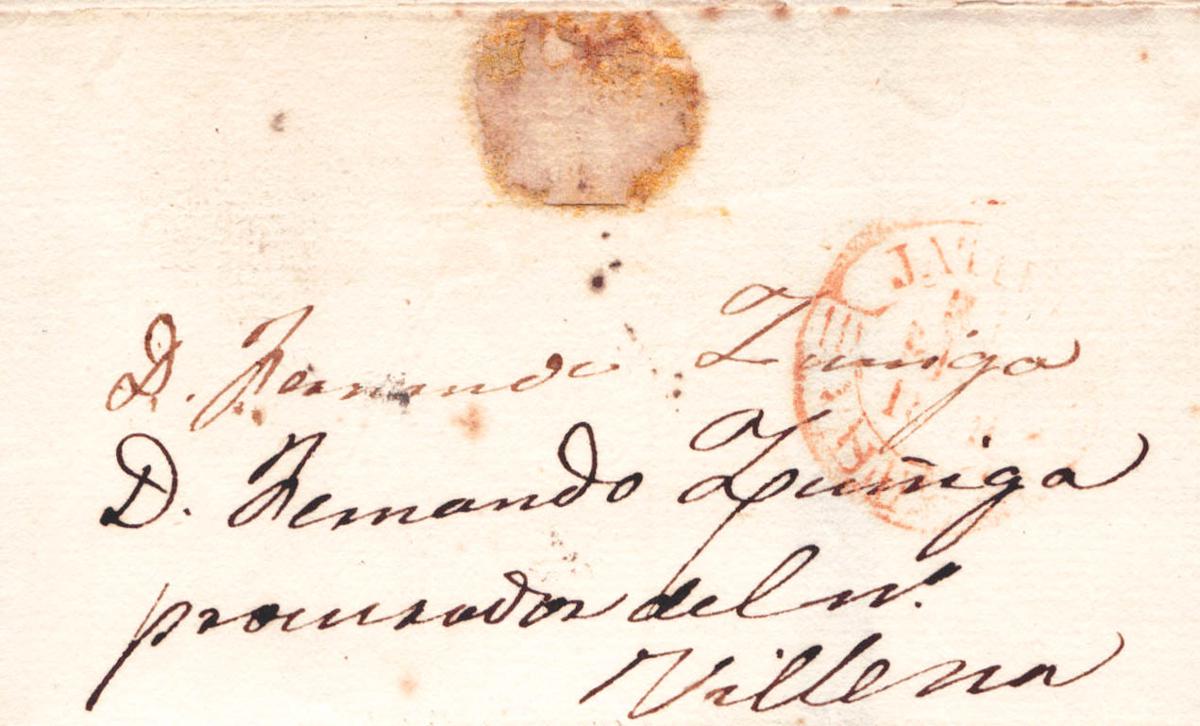 D. Fernando Zuniga
D. Fernando Zuñiga
procurador del n.º
Villena